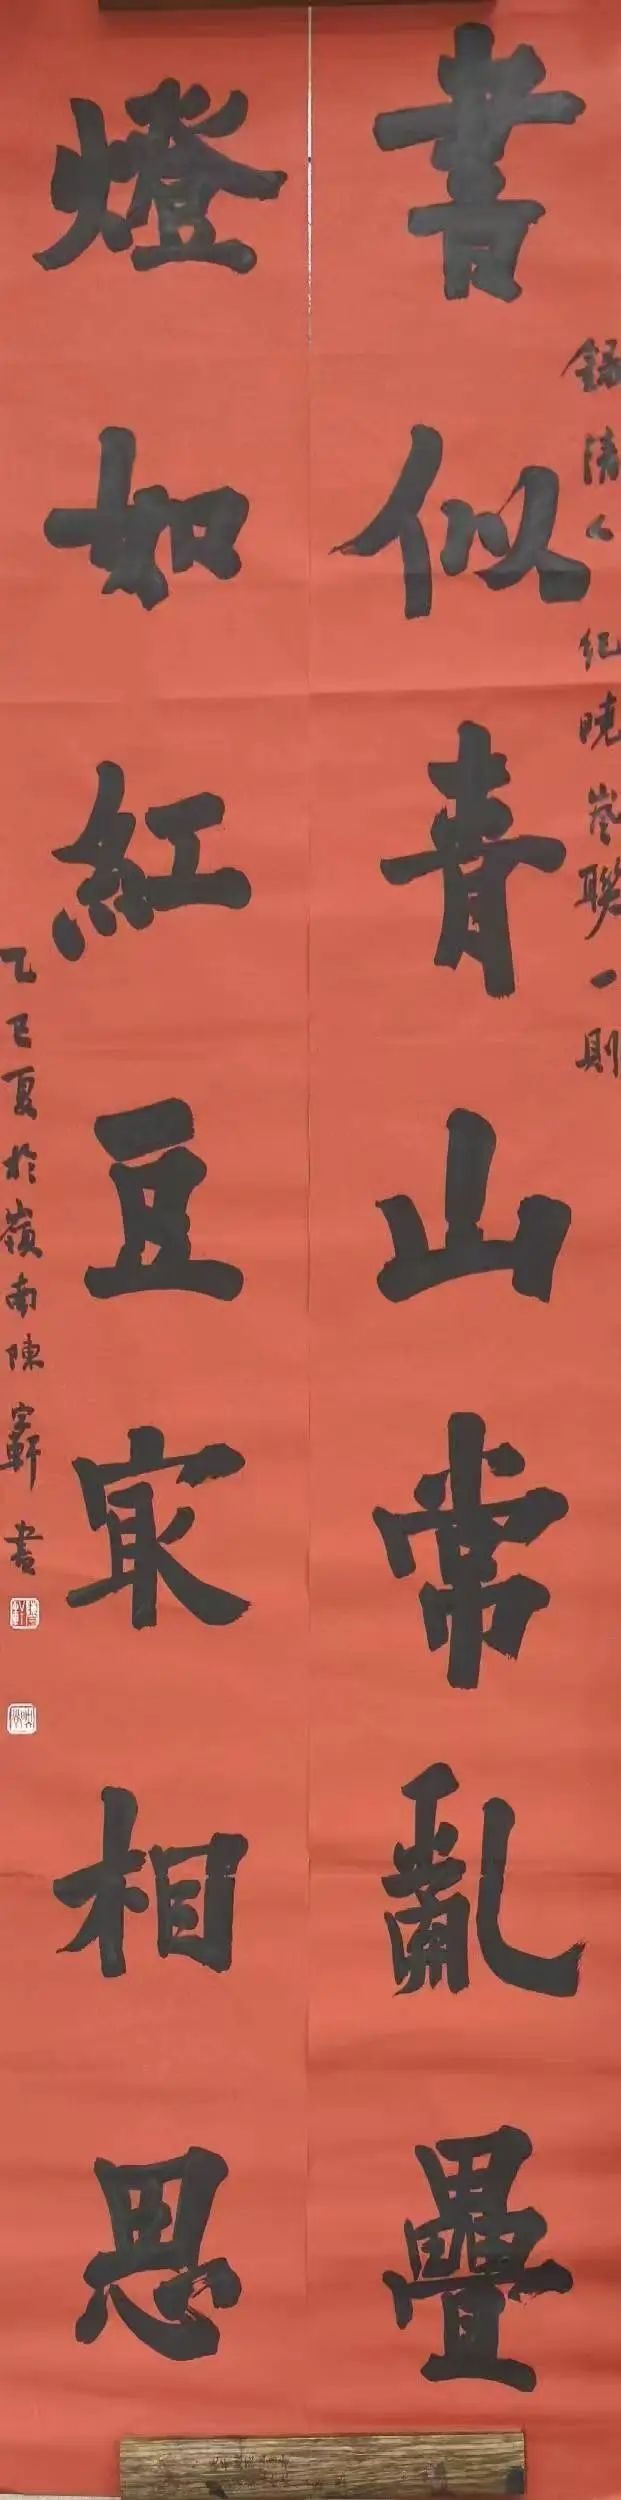 書似青山常亂疊
錄清人纪晓岚聯一則
燈如紅豆冣相思
乙巳夏於嶺南陳寧軒書